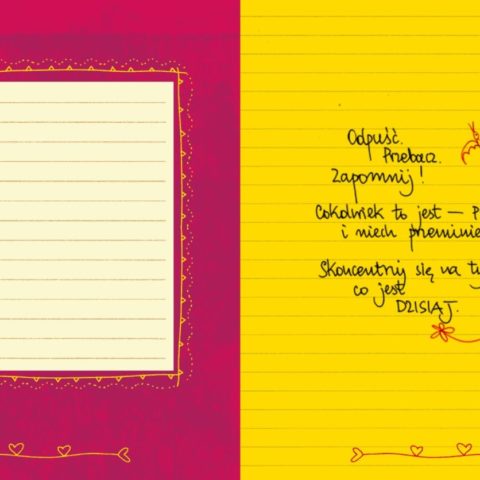 Odpuść.
Przebacz.
Zapomnij!
Cokolwiek to jest —
i niech przeminie
Skoncentruj się na
co jest
DZISIAJ.